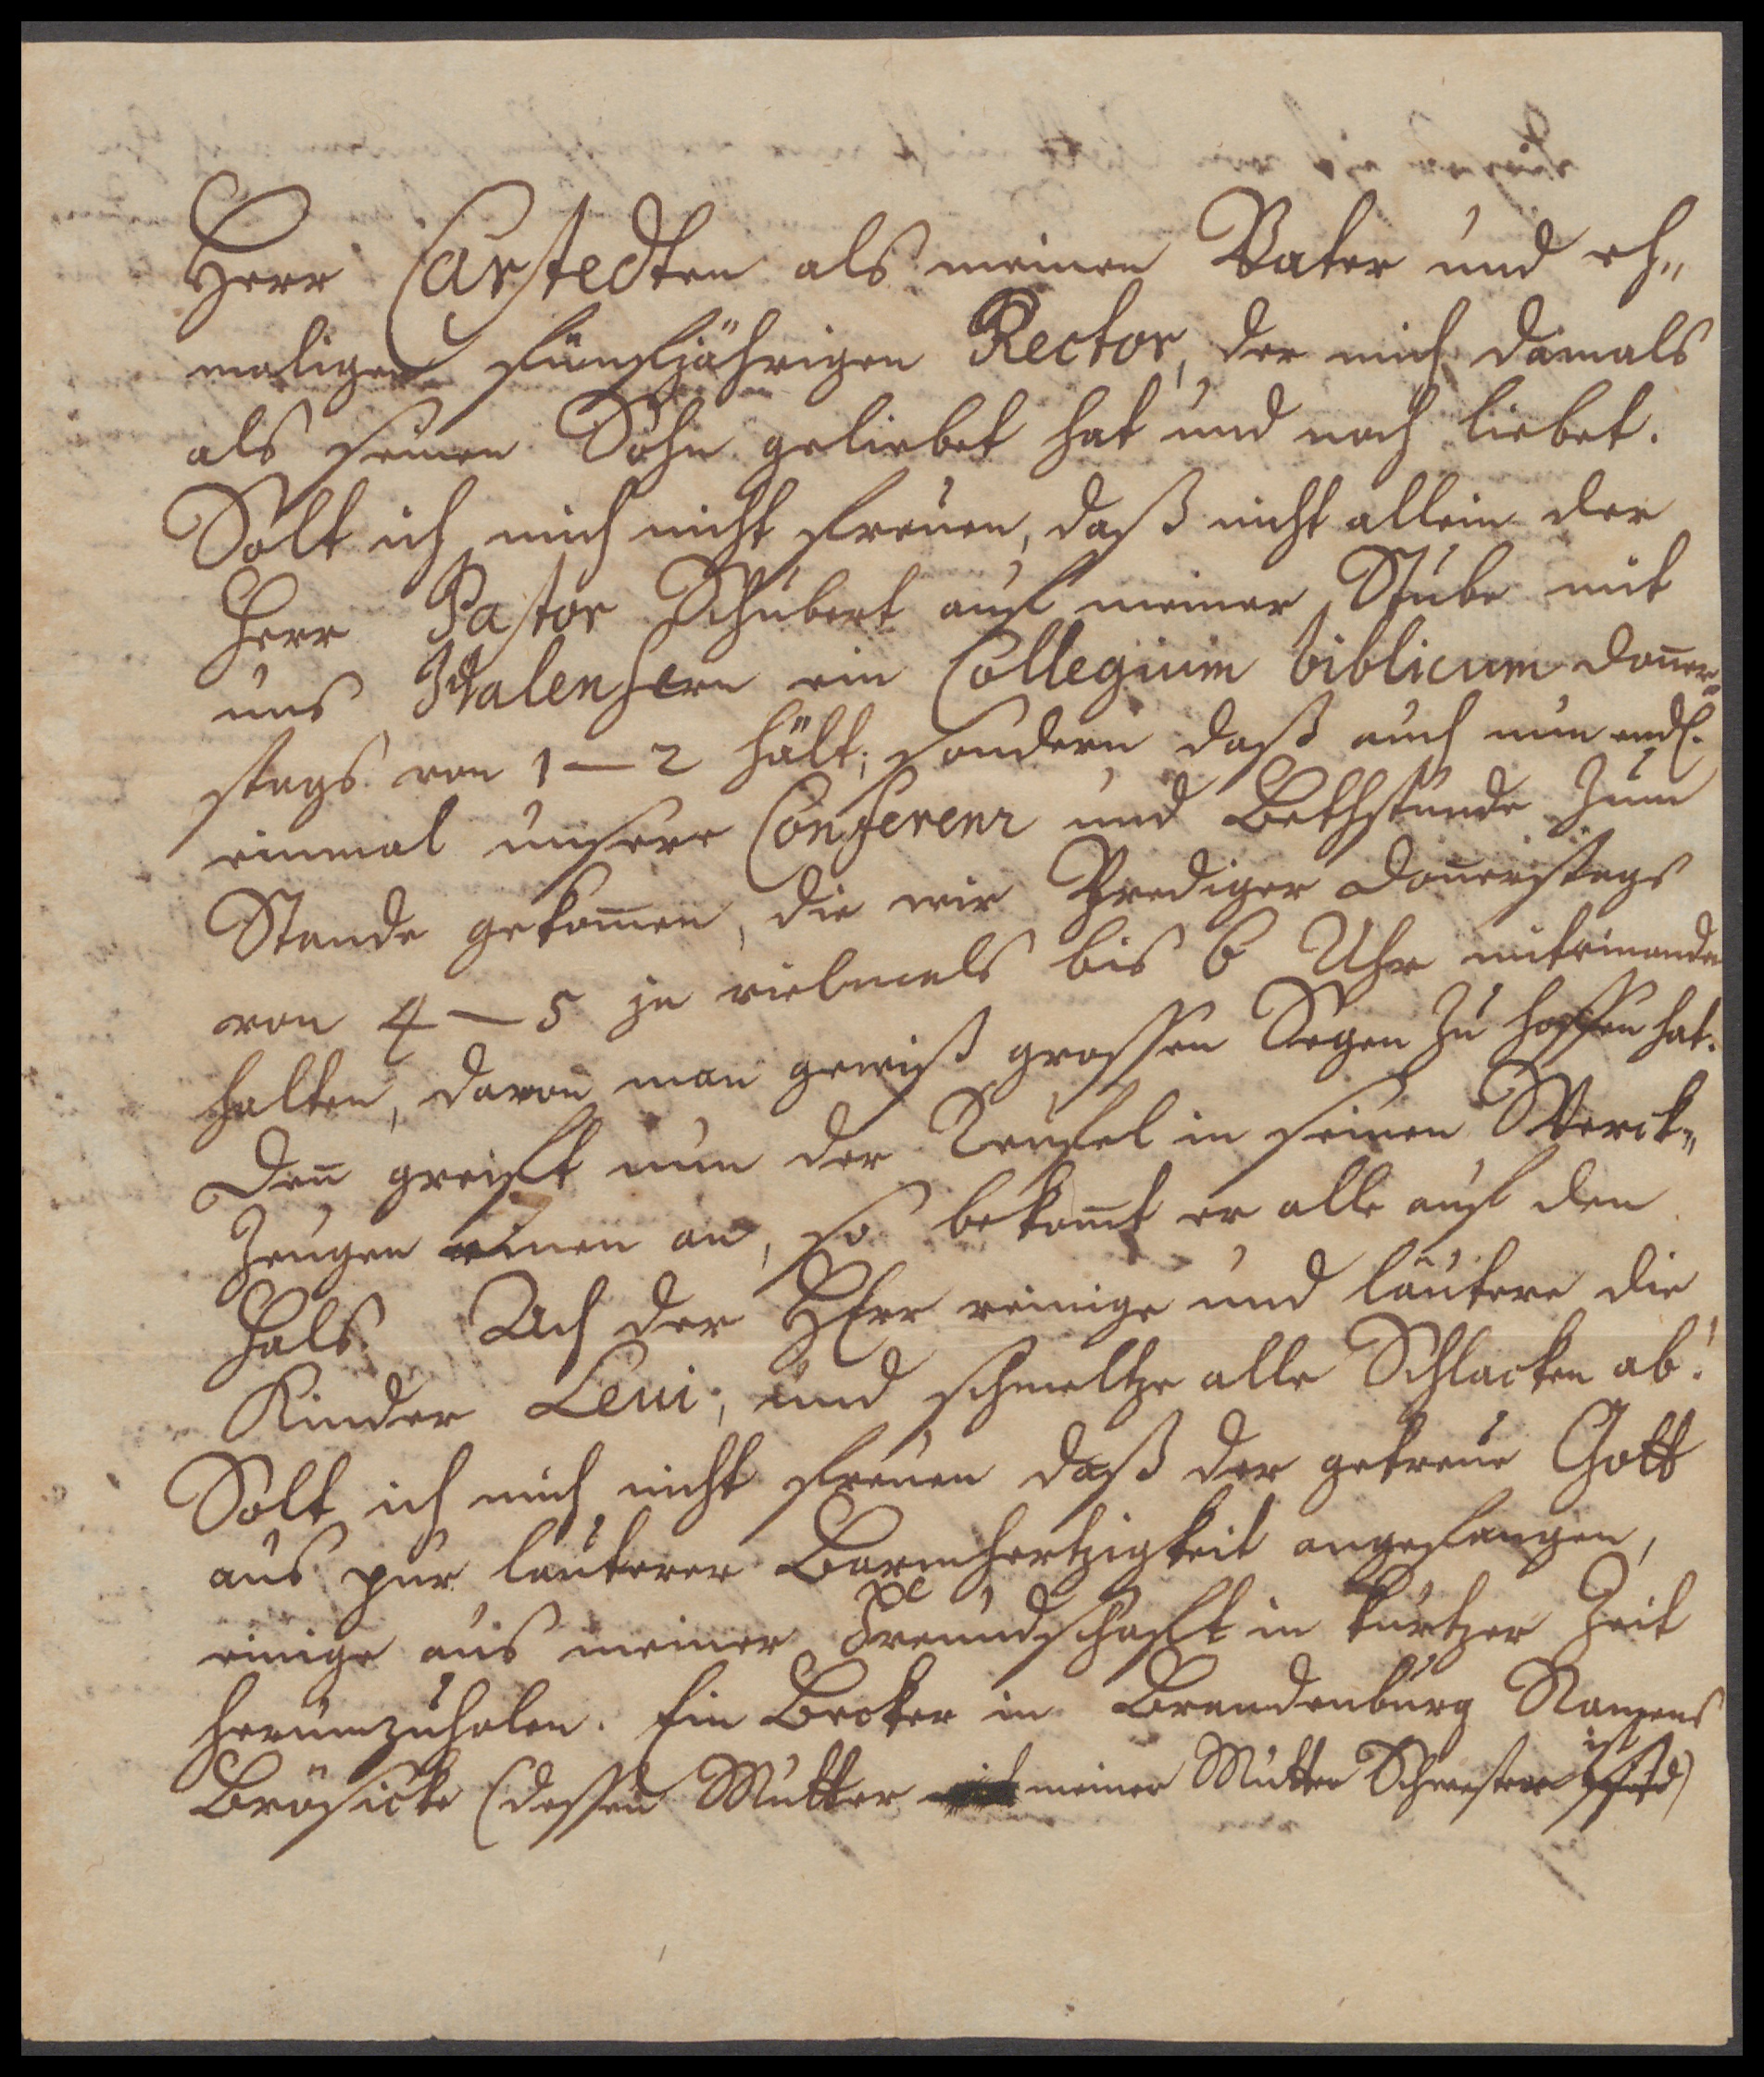 Herr Carstedten als meinen Vater und eh„
maligen fünfjährigen Rector, der mich damals
als seinen Sohn geliebet hat und noch liebet.
Solt ich mich nicht freuen, daß nicht allein der
Herr Pastor Schubert auf meiner Stube mit
uns Halensern ein Collegium biblicum doners„
stags von 1 — 2 hält; sondern daß auch nun endl.
einmal unsere Conferenz und Bethstunde zum
Stande gekom̄en, die wir Prediger Don̄erstags
von 4 — 5 ja vielmals bis 6 Uhr miteinander
halten, davon man gewiß grossen Segen zu hoffen hat.
Den̄ greift nun der Teufel in seinen Werck„
zeugen einen an, so bekom̄t er alle auf den
Hals. Ach der HErr reinige und läutere die
Kinder Levi; und schmeltze alle Schlacken ab!
Solt ich mich nicht freuen daß der getreue Gott
aus pur lauterer Barmhertzigkeit angefangen,
einige aus meiner Freundschafft in kurtzer Zeit
herumzuholen. Ein Becker in Brandenburg Namens
Brösicke (dessen Mutter meiner Mutter Schwester ist)